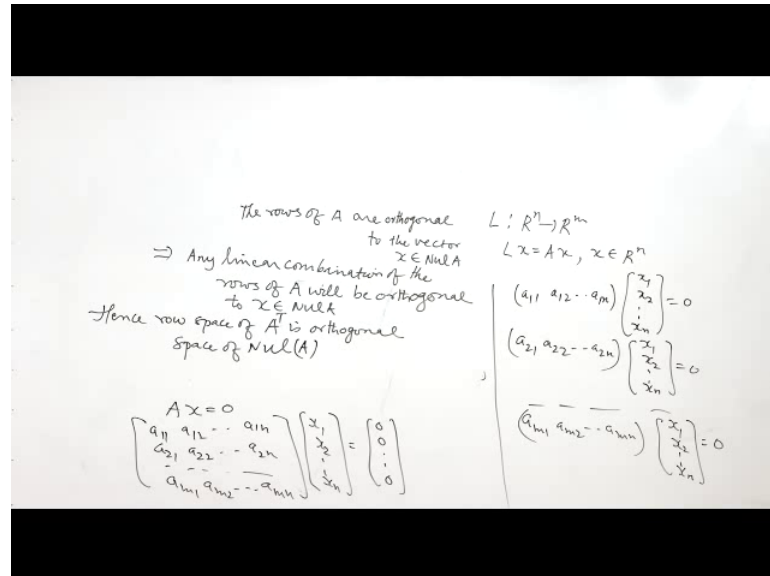 The rows of A are orthogonal
to the vector
x ∈ Nul A
⇒ Any linear combination of the
rows of A will be orthogonal
to x ∈ Nul A
Hence row space of A^T is orthogonal
Space of Nul(A)
Ax = 0
[a11 a12 .. a1n
a21 a22 .. a2n
- - - -
am1 am2 --- amn] [x1 x2 : xn] = [0 0 : 0]
L : R^n → R^m
Lx = Ax, x ∈ R^n
(a11 a12 .. a1n) [x1 x2 : xn] = 0
(a21 a22 -- a2n) [x1 x2 : xn] = 0
- - - -
(am1 am2 -- amn) [x1 x2 : xn] = 0